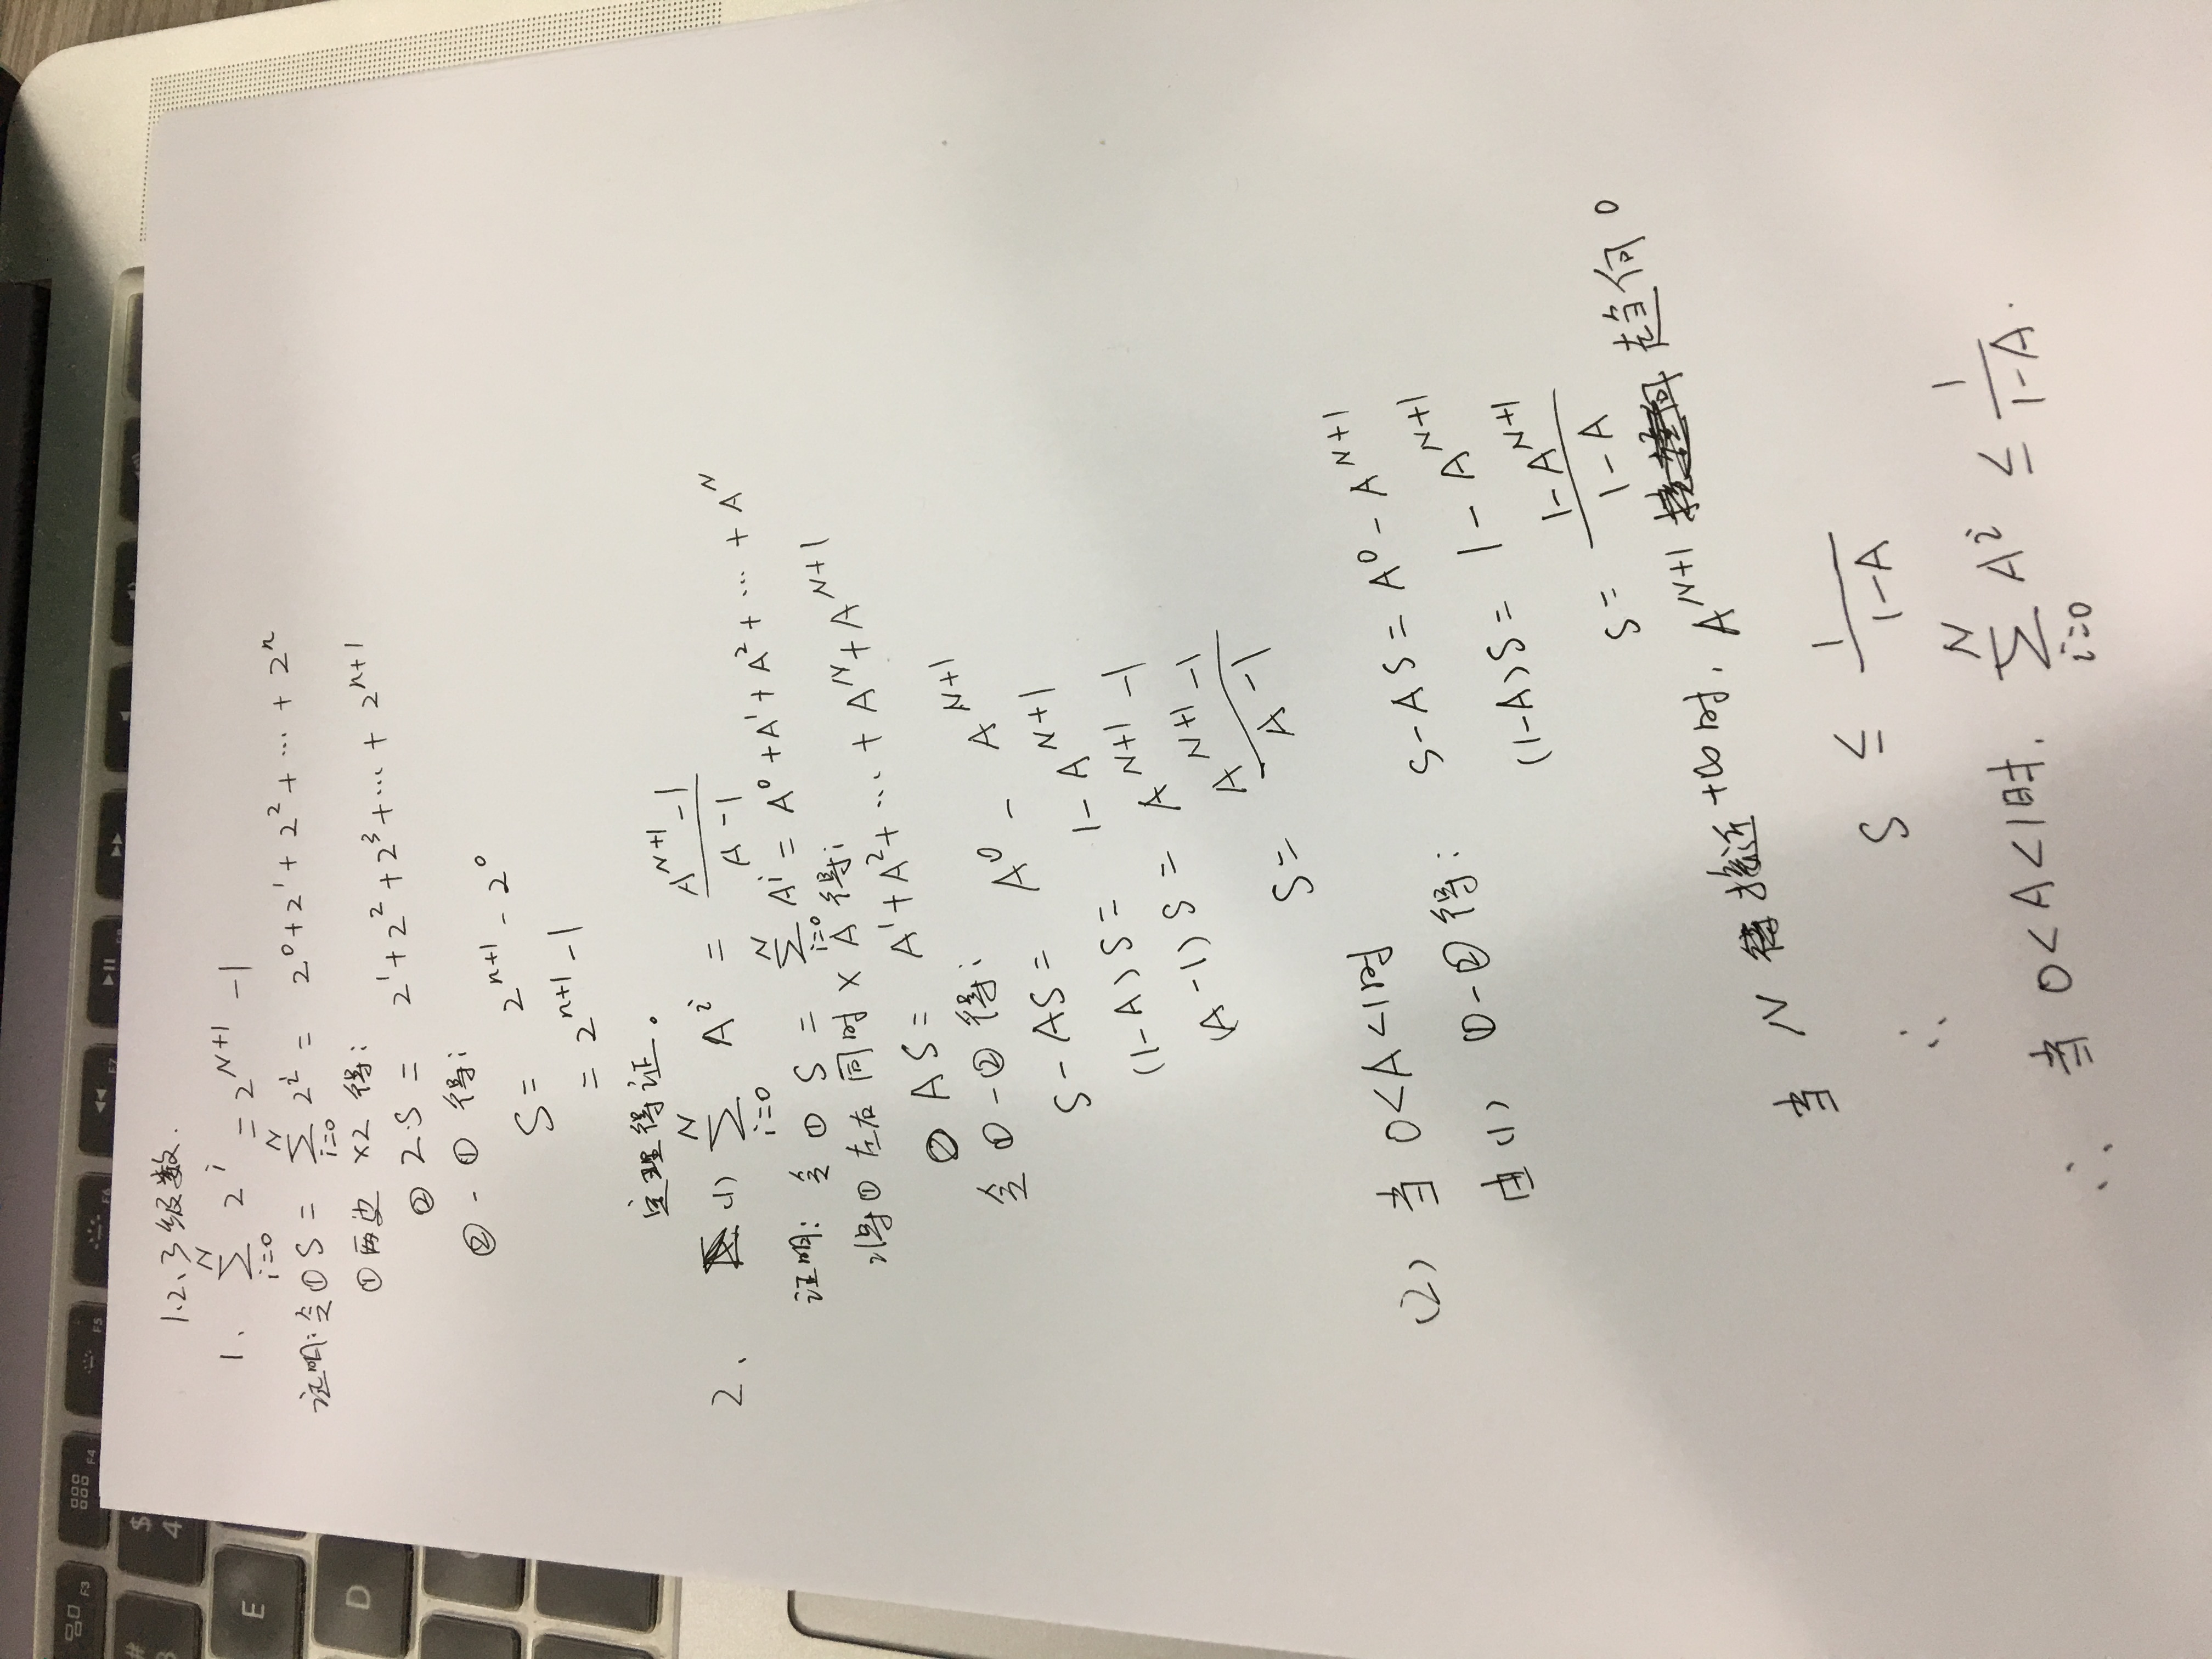 F3 F4 F5 F6 F7
# 3 $ 4
E
D
1.2.3级数.
1. ∑_{i=0}^{N} 2^i = 2^{N+1} -1
证明: 令① S = ∑_{i=0}^{N} 2^i = 2^0+2^1+2^2+…+2^n
①两边 ×2 得:
② 2·S = 2^1+2^2+2^3+…+2^{n+1}
② - ① 得:
S = 2^{n+1} - 2^0
= 2^{n+1} -1
定理得证。
2. (1) ∑_{i=0}^{N} A^i = \frac{A^{N+1}-1}{A-1}
证明: 令 ① S = ∑_{i=0}^{N} A^i = A^0+A^1+A^2+…+A^N
得① 左右同时 × A 得:
② AS = A^1+A^2+…+A^N+A^{N+1}
令 ①-② 得:
S-AS = A^0 - A^{N+1}
(1-A)S = 1-A^{N+1}
(A-1)S = A^{N+1}-1
S = \frac{A^{N+1}-1}{A-1}
(2) 当 0<A<1时
由(1) ①-② 得: S-AS = A^0-A^{N+1}
(1-A)S = 1-A^{N+1}
S = \frac{1-A^{N+1}}{1-A}
当 N 接近+∞时, A^{N+1} 趋向0
∴ S ≤ \frac{1}{1-A}
∴ 当 0<A<1时, ∑_{i=0}^{N} A^i ≤ \frac{1}{1-A}.